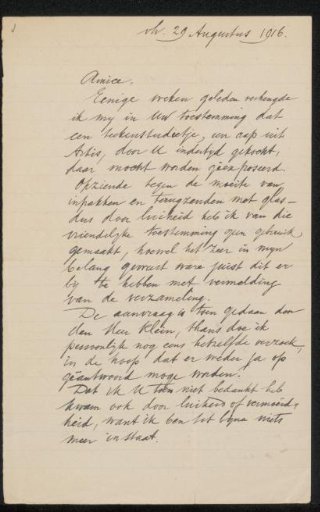 29 Augustus 1916.
Amice.
Eenige weken geleden verheugde
ik my in Uw toestemming dat
een teekenstudietje, een aap uit
Artis, door U indertyd gekocht,
daar mocht worden geëxposeerd.
Opziende tegen de moeite van
inpakken en terugzenden met glas-
deus door luiheid heb ik van die
vriendelyke toestemming geen gebruik
gemaakt, hoewel het zeer in myn
belang geweest ware juist dit er
by te hebben met vermelding
van de verzameling.
De aanvraag is toen gedaan door
den Heer Klein, thans doe ik
persoonlyk nog eens hetzelfde verzoek,
in de hoop dat er weder ja op
geäntwoord moge worden.
Dat ik U toen niet bedankt heb
kwam ook door luiheid of vermoeid-
heid, want ik ben tot byna niets
meer in staat.